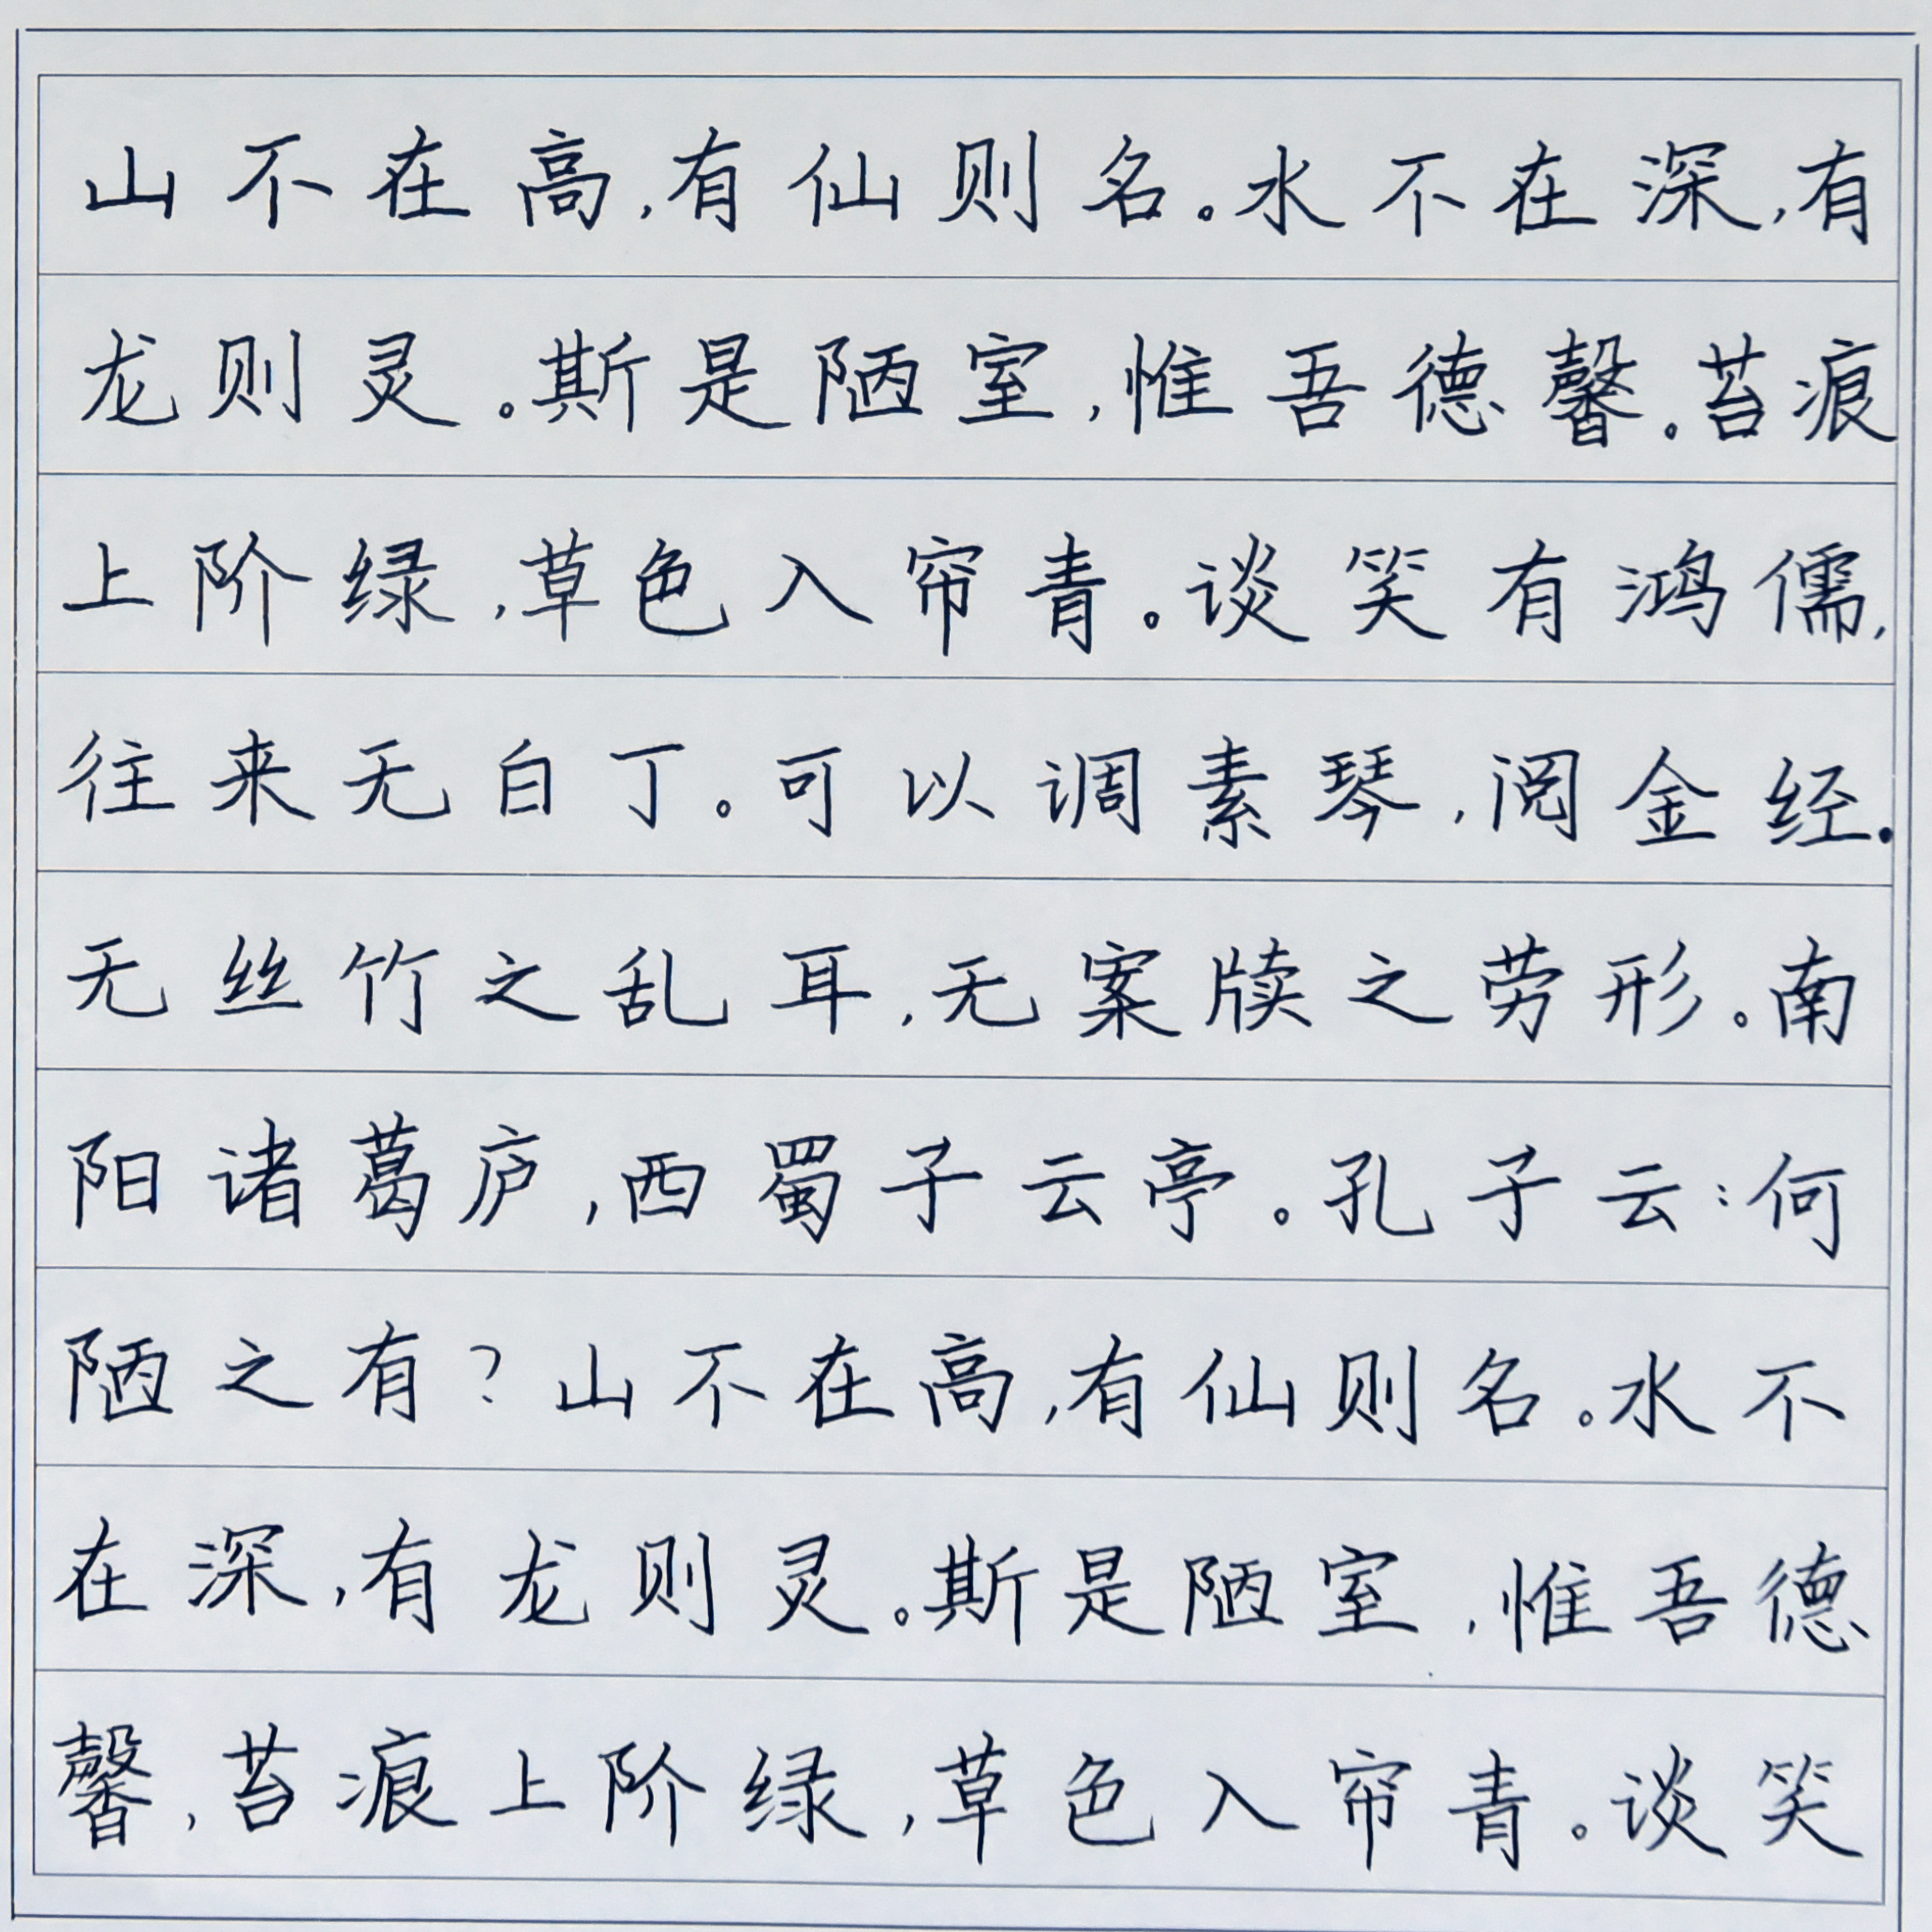 山不在高,有仙则名。水不在深,有
龙则灵。斯是陋室,惟吾德馨。苔痕
上阶绿,草色入帘青。谈笑有鸿儒,
往来无白丁。可以调素琴,阅金经.
无丝竹之乱耳,无案牍之劳形。南
阳诸葛庐,西蜀子云亭。孔子云:何
陋之有?山不在高,有仙则名。水不
在深,有龙则灵。斯是陋室,惟吾德
馨,苔痕上阶绿,草色入帘青。谈笑